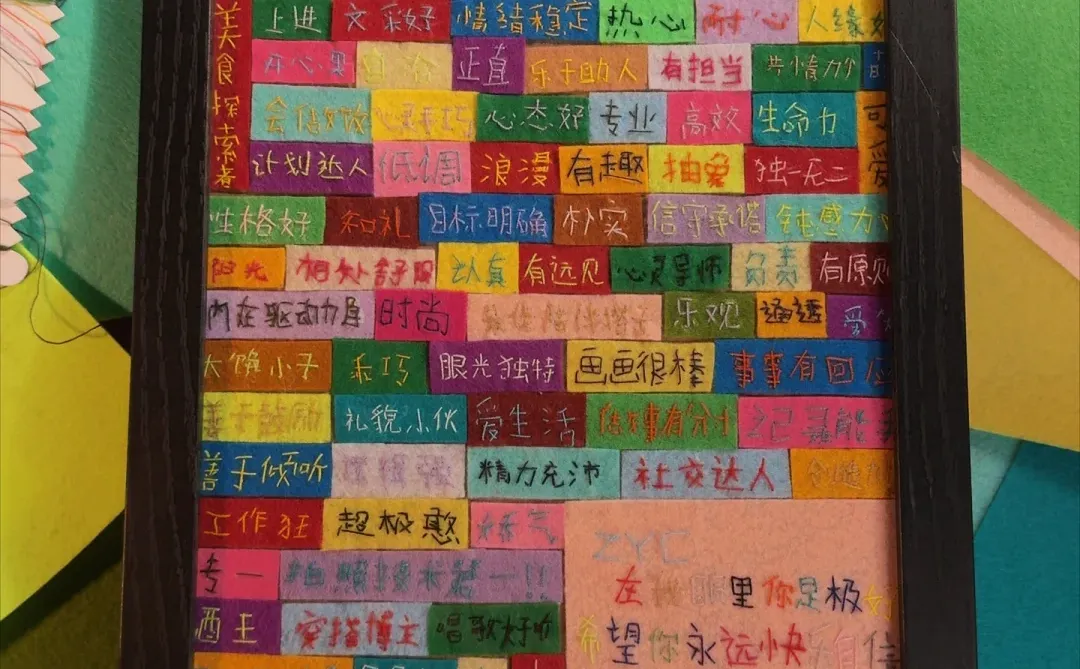 美食探索者
上进 文彩好 情绪稳定 热心 耐心 人缘好
开心果 自洽 正直 乐于助人 有担当 共情力
会倍好放 心灵手巧 心态好 专业 高效 生命力 可爱
计划达人 低调 浪漫 有趣 抽象 独一无二
性格好 知礼 目标明确 朴实 信守承诺 钝感力
阳光 相处舒服 认真 有远见 心灵导师 负责 有原则
内在驱动力 时尚 乐观 通透
大馋小子 乖巧 眼光独特 画画很棒 事事有回应
善于鼓励 礼貌小伙 爱生活 做事有分寸
善于倾听 精力充沛 社交达人
工作狂 超极憨
专一 拍照技术第一!!
酒王 穿搭博主 唱歌好听
ZYC
在 眼里你是极好
希望你永远快乐自信